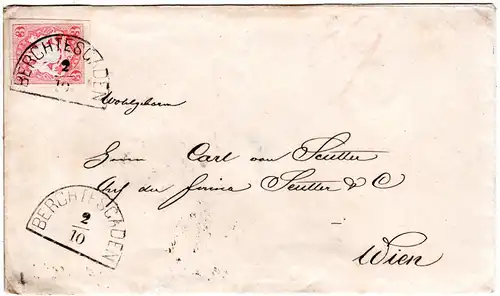 BERCHTESGADEN
2
10
Wohlgeborn
Herrn Carl von Scutter
Auf der Firma Scutter & C
BERCHTESGADEN
2
10
Wien